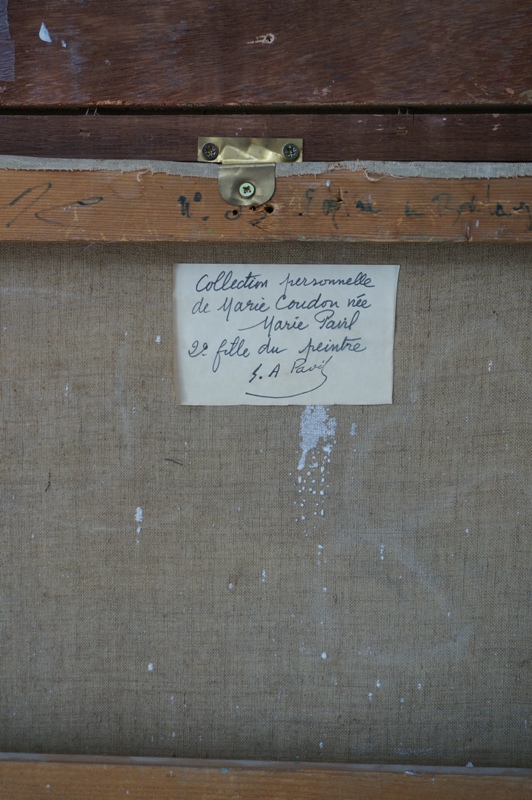 N°
Collection personnelle
de Marie Coudon née
Marie Pavil
2e fille du peintre
E. A Pavil